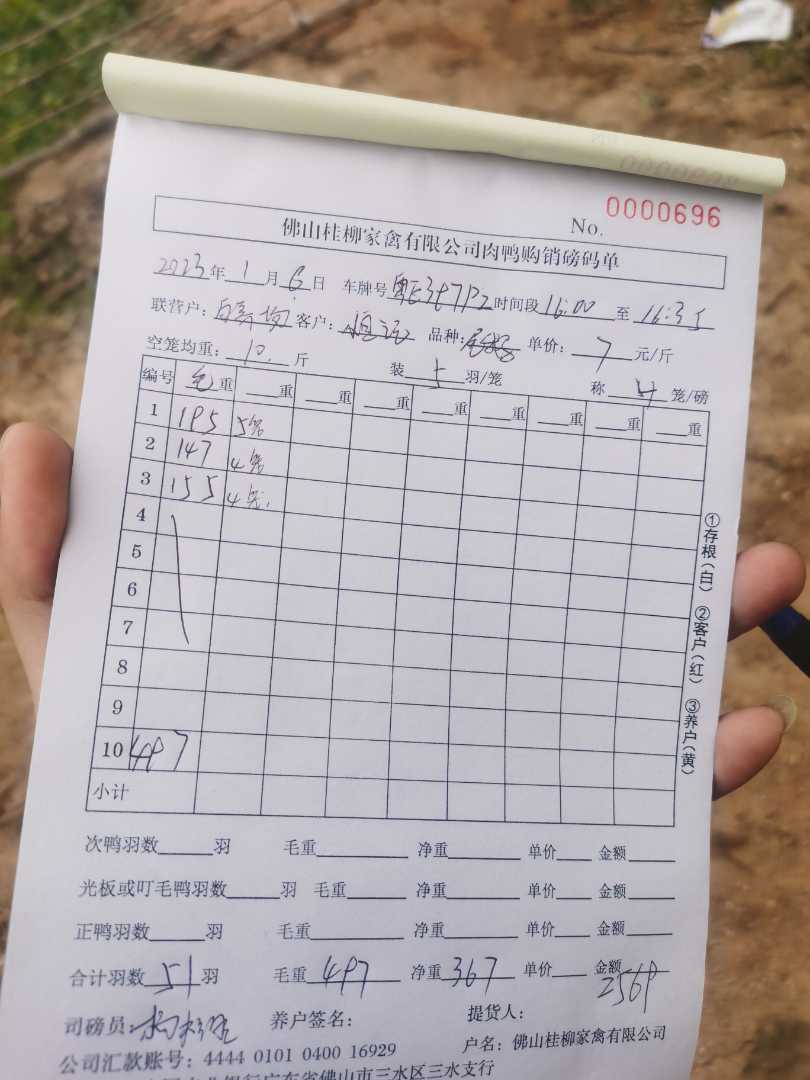 No. 0000696
佛山桂柳家禽有限公司肉鸭购销磅码单
2023年1月6日 车牌号 时间段16:00至16:35
联营户: 客户: 品种: 单价:7元/斤
空笼均重:10.斤 装5羽/笼 称4笼/磅
编号 毛重 重 重 重 重 重 重 重 重
1 195 5笼
2 147 4笼
3 155 4笼.
4
5
6
7
8
9
10 497
小计
①存根(白) ②客户(红) ③养户(黄)
次鸭羽数 羽 毛重 净重 单价 金额
光板或叮毛鸭羽数 羽 毛重 净重 单价 金额
正鸭羽数 羽 毛重 净重 单价 金额
合计羽数51羽 毛重497 净重367 单价 金额2569
司磅员: 养户签名: 提货人:
公司汇款账号:4444 0101 0400 16929 户名:佛山桂柳家禽有限公司
银行广东省佛山市三水区三水支行